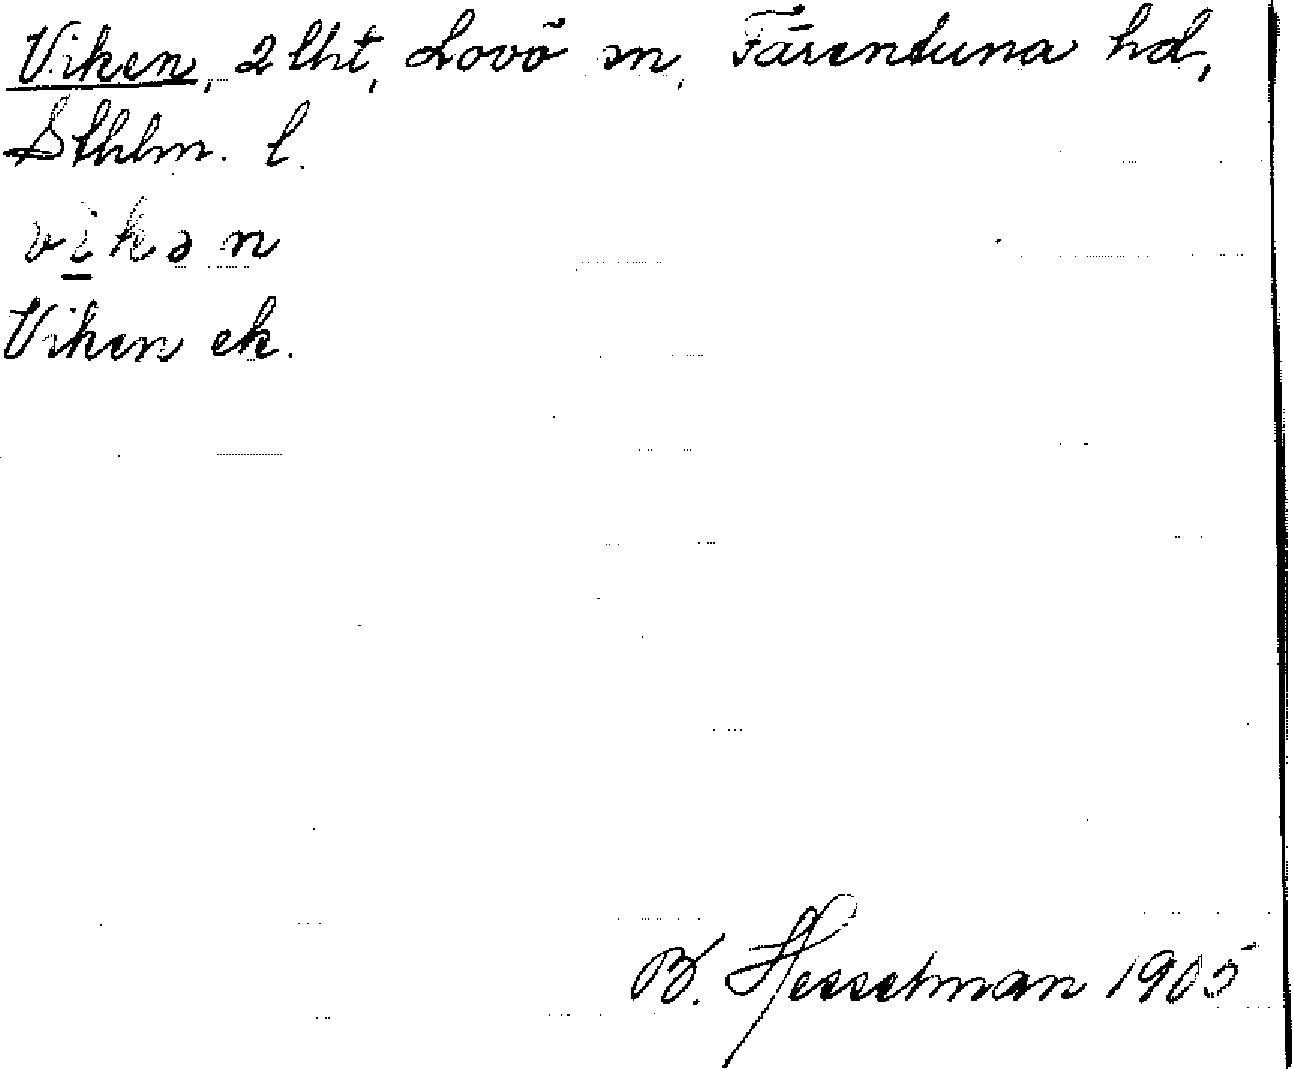 Viken, 2 lht, Lovö sn, Färentuna hd,
Sthlm. l.
vikən
Viken ek.
B. Hesselman 1905